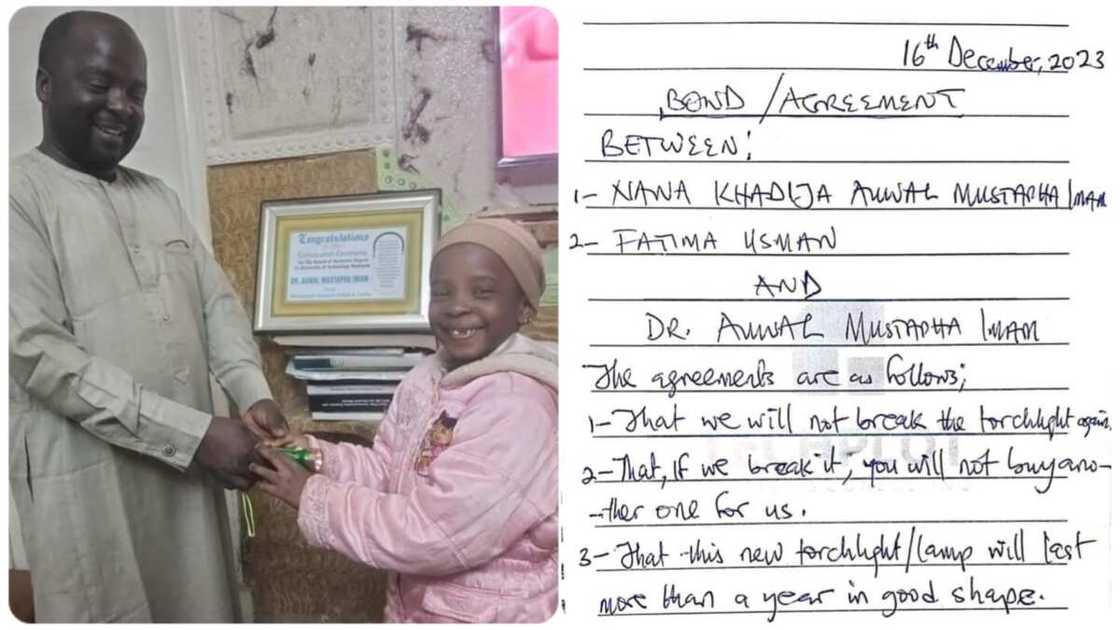 Congratulations
Convocation Ceremony
DR. AUWAL MUSTAPHA IMAM
16th December, 2023
BOND / AGREEMENT
BETWEEN:
1- NANA KHADIJA AUWAL MUSTAPHA IMAM
2- FATIMA USMAN
AND
DR. AUWAL MUSTAPHA IMAM
The agreements are as follows;
1- That we will not break the torchlight again.
2- That, If we break it, you will not buy ano-
-ther one for us.
3- That this new torchlight/lamp will last
more than a year in good shape.